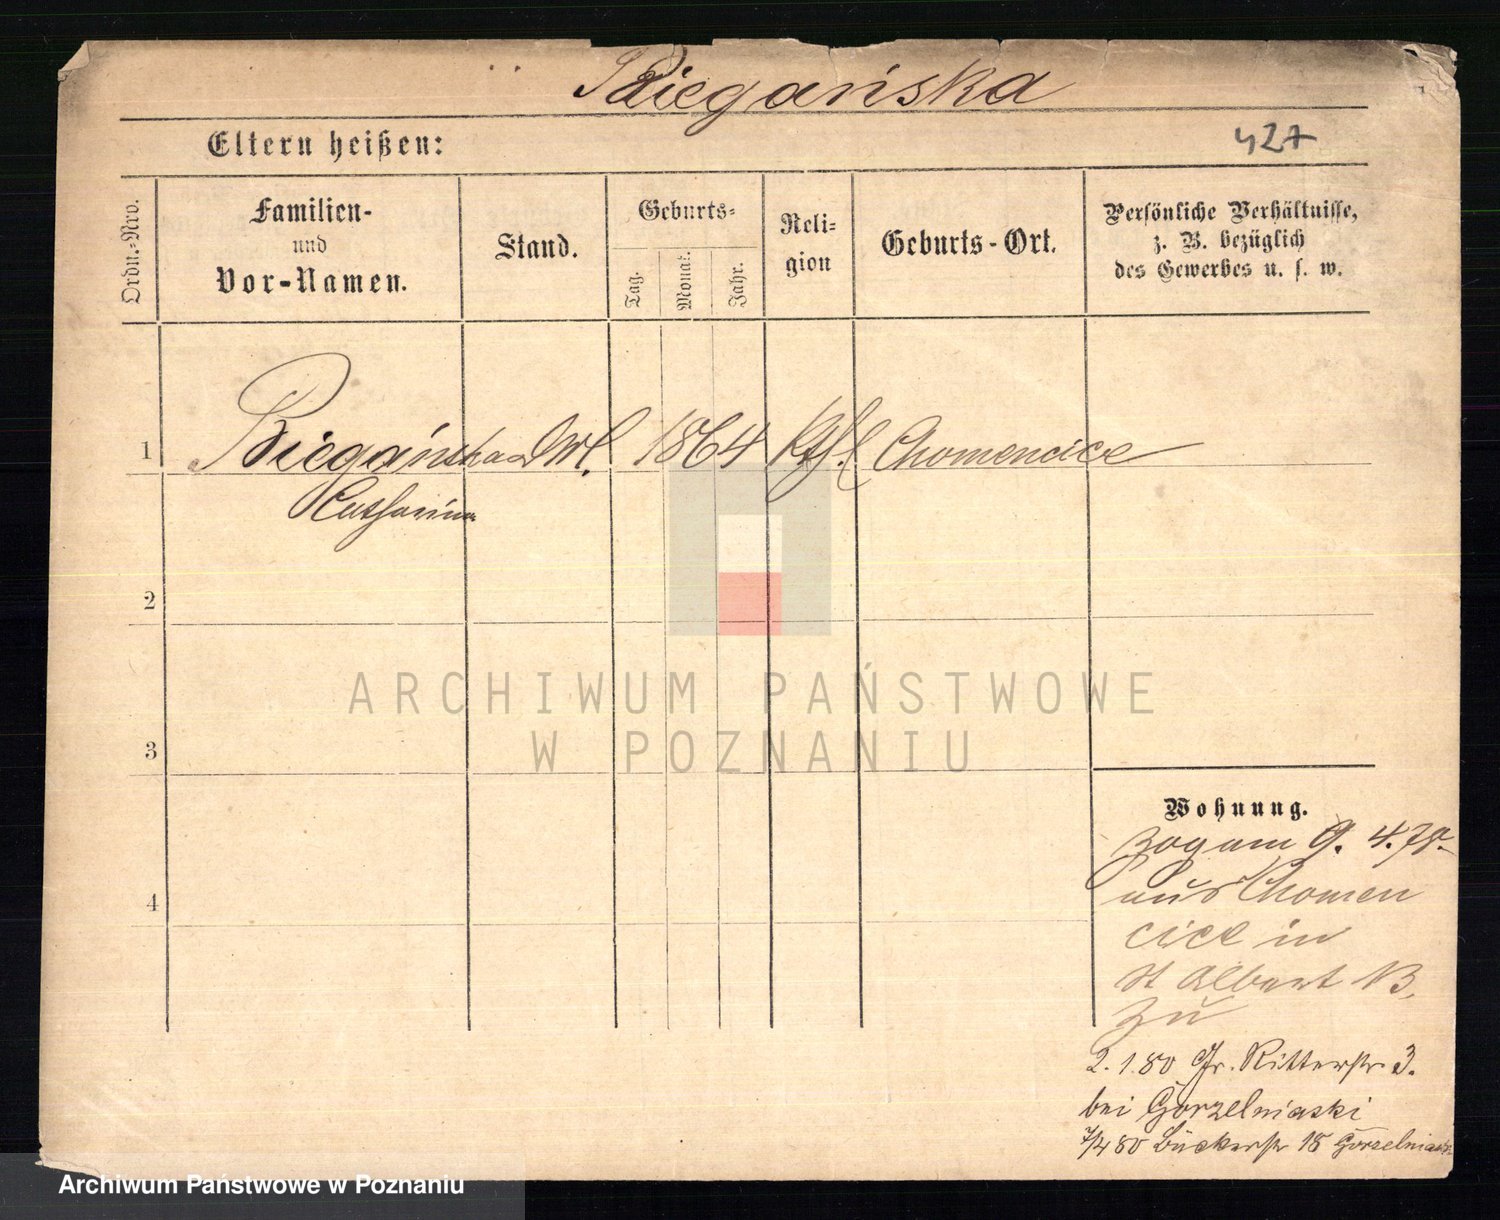 Biegańska
Eltern heißen:
427
Ordn.-Nro.
Familien-
und
Vor-Namen.
Stand.
Geburts-
Tag.
Monat.
Jahr.
Reli-
gion
Geburts-Ort.
Persönliche Verhältnisse,
z. B. bezüglich
des Gewerbes u. s. w.
1 Biegańska 1864 Kthl Chomencice
Catharina
2
3
4
ARCHIWUM PAŃSTWOWE
W POZNANIU
Wohnung.
zog am 9. 4. 78.
aus Chomen
cice in
St Albert B.
zu
2. 1. 80 Gr. Ritterstr 3.
bei Gorzelniaski
7/4 80 Bäckerstr 18
Archiwum Państwowe w Poznaniu